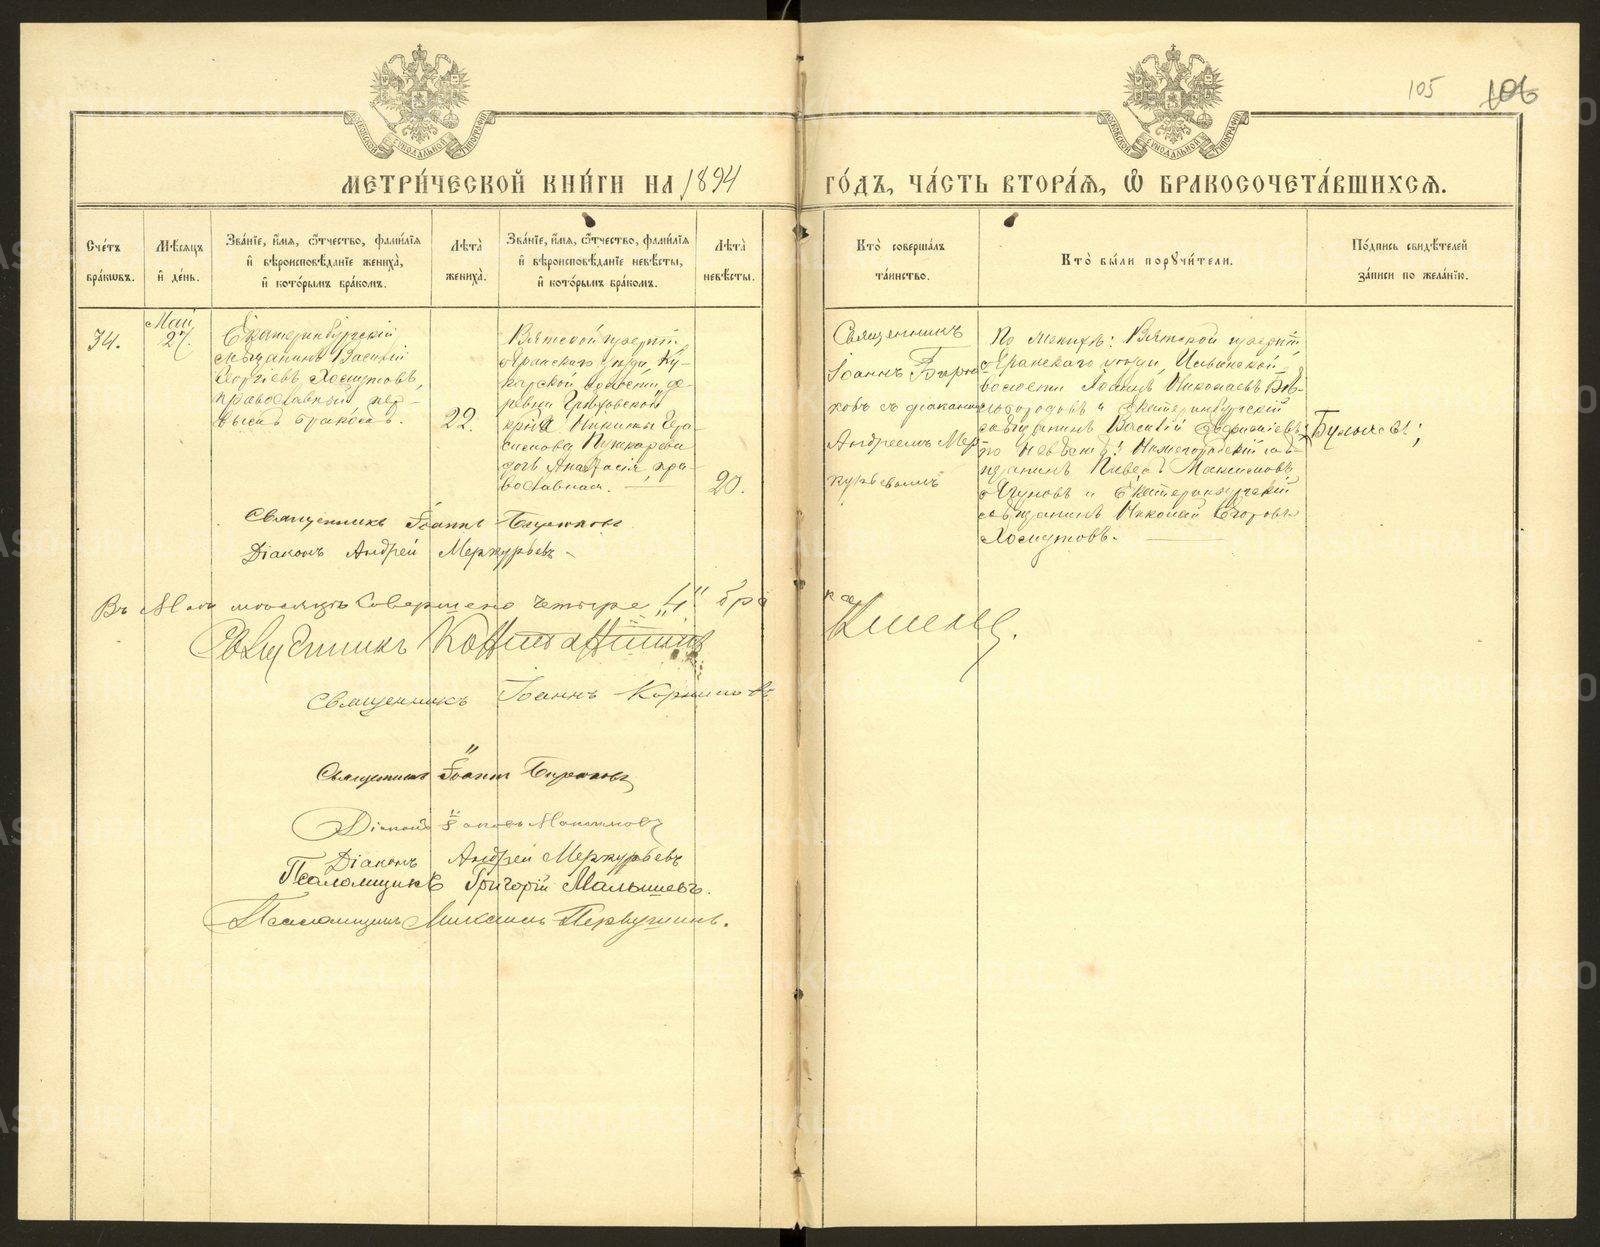 105 106
МЕТРИ́ЧЕСКОЙ КНИ́ГИ НА 1894 ГО́ДЪ, ЧА́СТЬ ВТОРА́Я, Ѽ БРАКОСОЧЕТА́ВШИХСЯ.
Сче́тъ бра́ковъ.
Мѣ́сяцъ и҆ де́нь.
Зва́нїе, и҆́мя, ѻ҆́тчество, фами́лїя и҆ вѣроисповѣ́данїе жениха̀, и҆ кото́рымъ бра́комъ.
Лѣта̀ жениха̀.
Зва́нїе, и҆́мя, ѻ҆́тчество, фами́лїя и҆ вѣроисповѣ́данїе невѣ́сты, и҆ кото́рымъ бра́комъ.
Лѣта̀ невѣ́сты.
Кто̀ соверша́лъ та́инство.
Кто̀ бы́ли порꙋчи́тели.
По́дпись свидѣ́телей за́писи по жела́нїю.
34.
Май
27.
Екатеринбургскій
мѣщанинъ Василій
Георгіевъ Хомутовъ,
православный пер-
вымъ бракомъ.
22.
Вятской губерніи,
Яранскаго уѣзда, Ку-
карской волости, де-
ревни
Никиты Гера-
симова
дочь Анастасія, пра-
вославная.
20.
Священникъ
Іоаннъ Бирю-
ковъ съ діакономъ
Андреемъ Мер-
курьевымъ
По женихѣ: Вятской губерніи,
Яранскаго уѣзда,
волости Іоаннъ Николаевъ
и Екатеринбургскій
мѣщанинъ Василій
по невѣстѣ:
Максимовъ
и Екатеринбургскій
мѣщанинъ Николай Егоровъ
Хомутовъ.
Булычевъ;
Священникъ Іоаннъ Бирюковъ
Діаконъ Андрей Меркурьевъ
Въ Маѣ мѣсяцѣ совершено четыре „4" бра ка
Священникъ
Священникъ Іоаннъ
Священникъ Іоаннъ Бирюковъ
Діаконъ Іаковъ Максимовъ
Діаконъ Андрей Меркурьевъ
Псаломщикъ Григорій Малышевъ.
Псаломщикъ Михаилъ Первушинъ.
METRIKI.GASO-URAL.RU